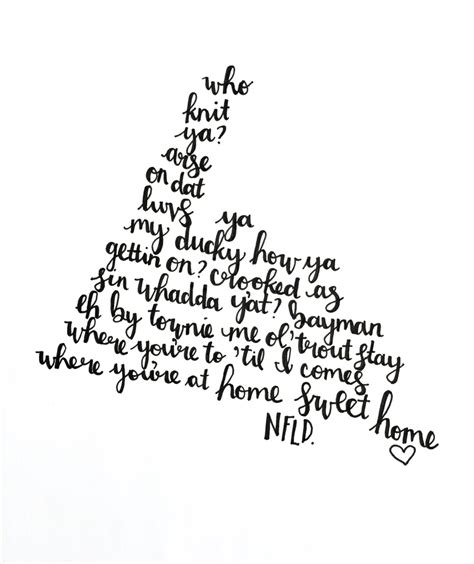 who
knit
ya?
arse
on dat
luvs ya
my ducky how ya
gettin on? crooked as
sin whadda y'at? bayman
eh by townie me ol' trout stay
where you're to 'til I comes
where you're at home sweet home
NFLD.